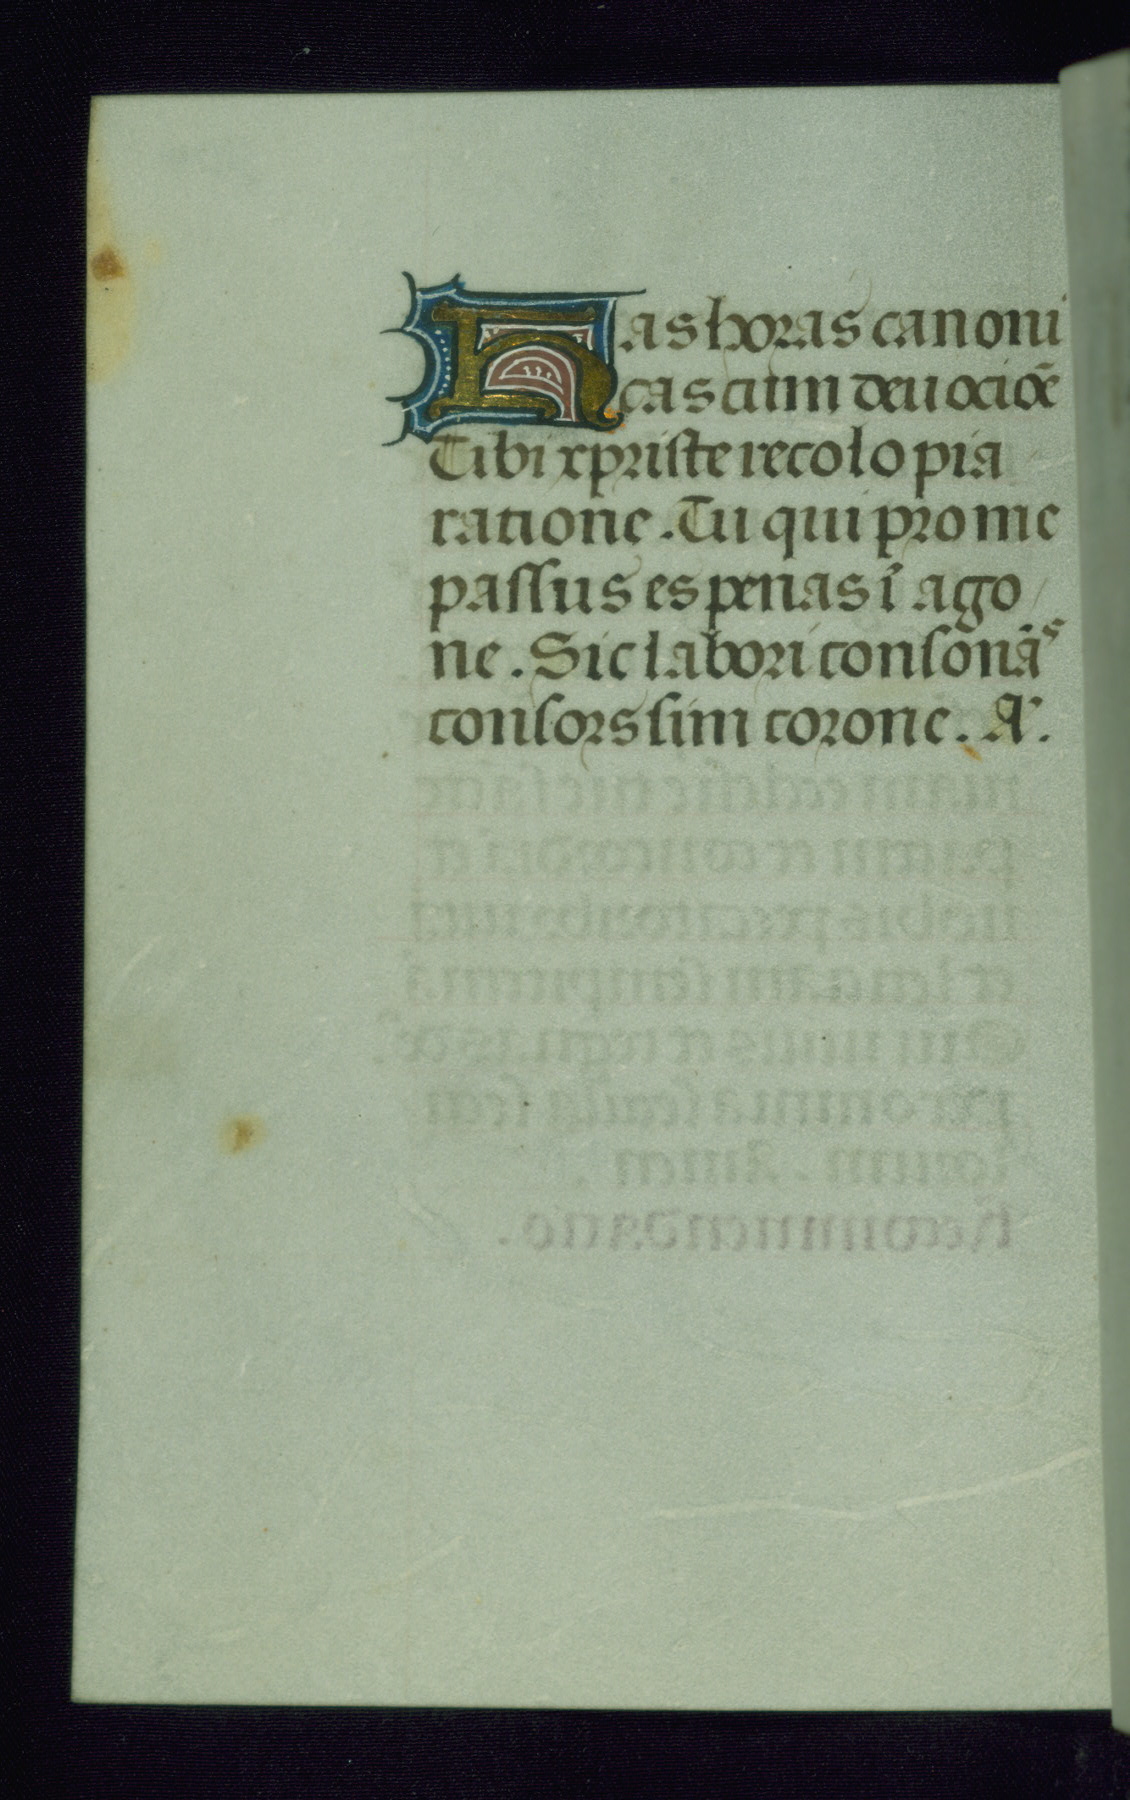 Has horas canoni
cas cum deuocioē
Tibi xpriste recolo pia
ratione. Tu qui pro me
passus es penas ī ago
ne. Sic labori consonāˢ
consors sim corone. A.